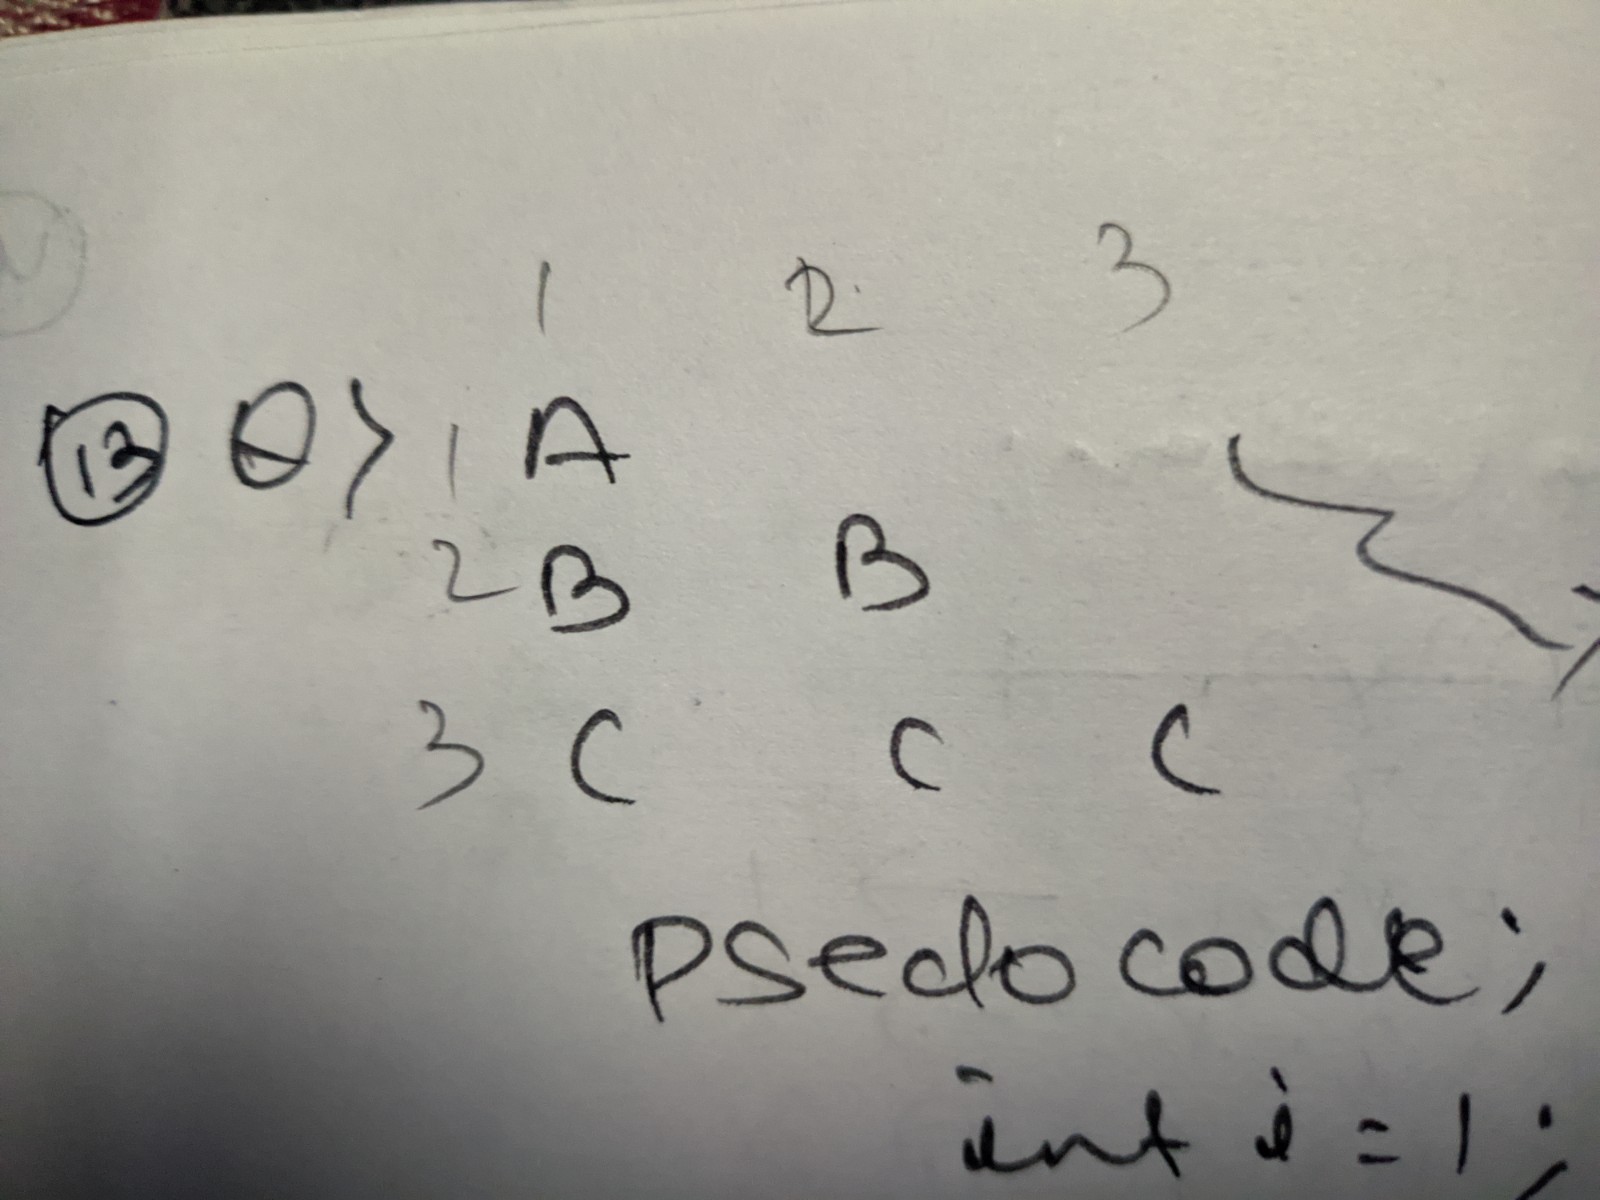 1 2 3
13 Q> 1 A
2 B B
3 C C C
Psedo code;
int i = 1;